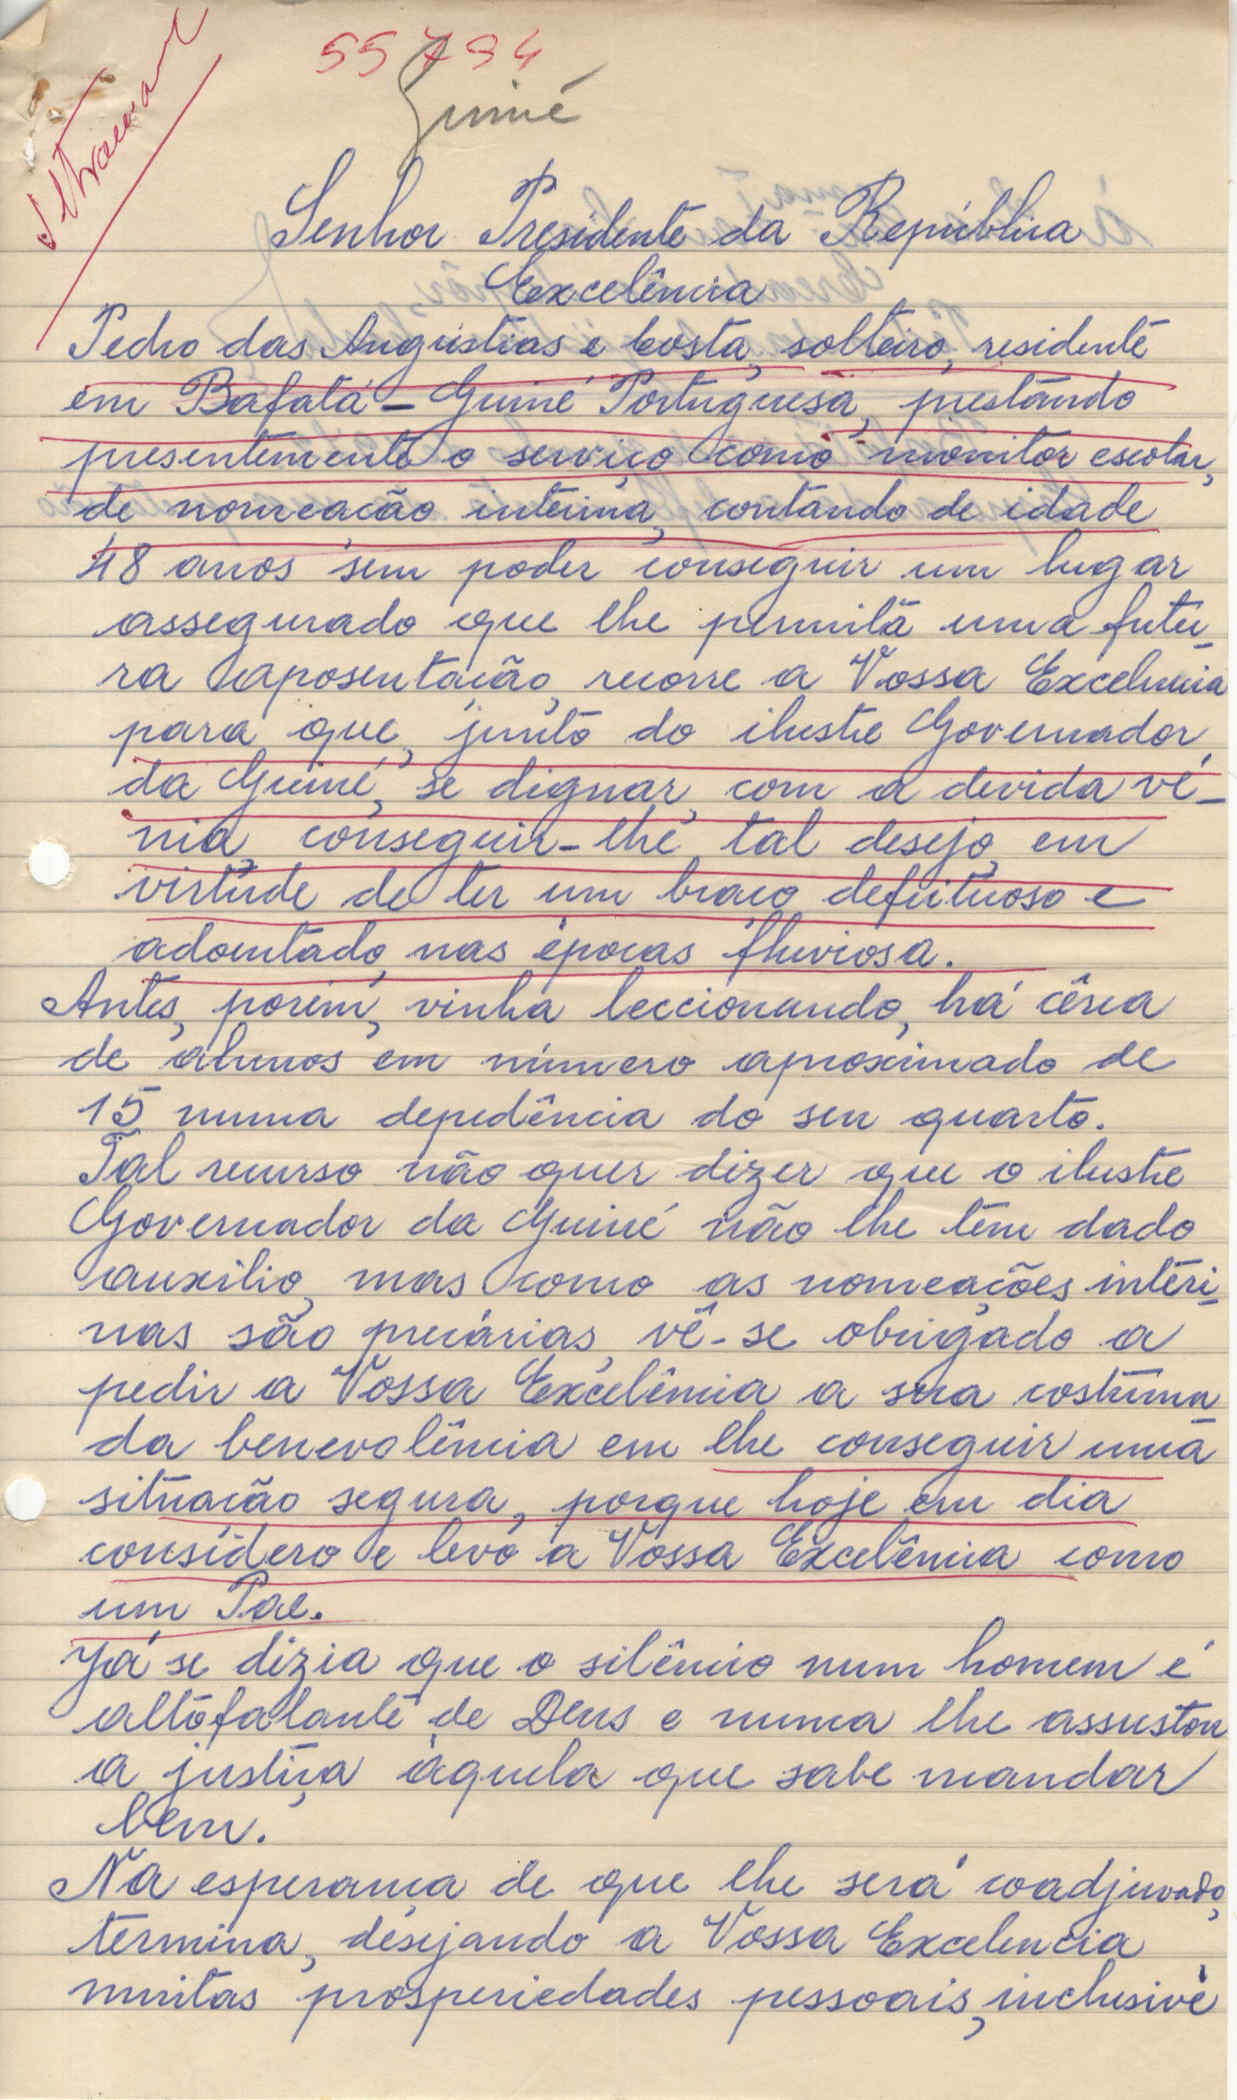 55794
Guiné
Ultramar
Senhor Presidente da República
Excelência
Pedro das Angústias e Costa, solteiro, residente
em Bafatá - Guiné Portuguesa, prestando
presentemente o serviço como monitor escolar,
de nomeação interina, contando de idade
48 anos sem poder conseguir um lugar
assegurado que lhe permita uma futu-
ra aposentação, recorre a Vossa Excelencia
para que, junto do ilustre Governador
da Guiné, se dignar, com a devida vé-
nia, conseguir-lhe tal desejo, em
virtude de ter um braço defeituoso e
adoentado, nas épocas fluviosa.
Antes, porém, vinha leccionando, há cêrca
de alunos em número aproximado de
15 numa depedência do seu quarto.
Tal recurso não quer dizer que o ilustre
Governador da Guiné não lhe têm dado
auxílio, mas como as nomeações interi-
nas são precárias, vê-se obrigado a
pedir a Vossa Excelência a sua costuma-
da benevolência em lhe conseguir uma
situação segura, porque hoje em dia
considero e levo a Vossa Excelência como
um Pae.
Já se dizia que o silêncio num homem é
altofalante de Deus e nunca lhe assustou
a justiça àquela que sabe mandar
bem.
Na esperança de que lhe será coadjuvado,
termina, desejando a Vossa Excelencia
muitas prosperiedades pessoais, inclusivé